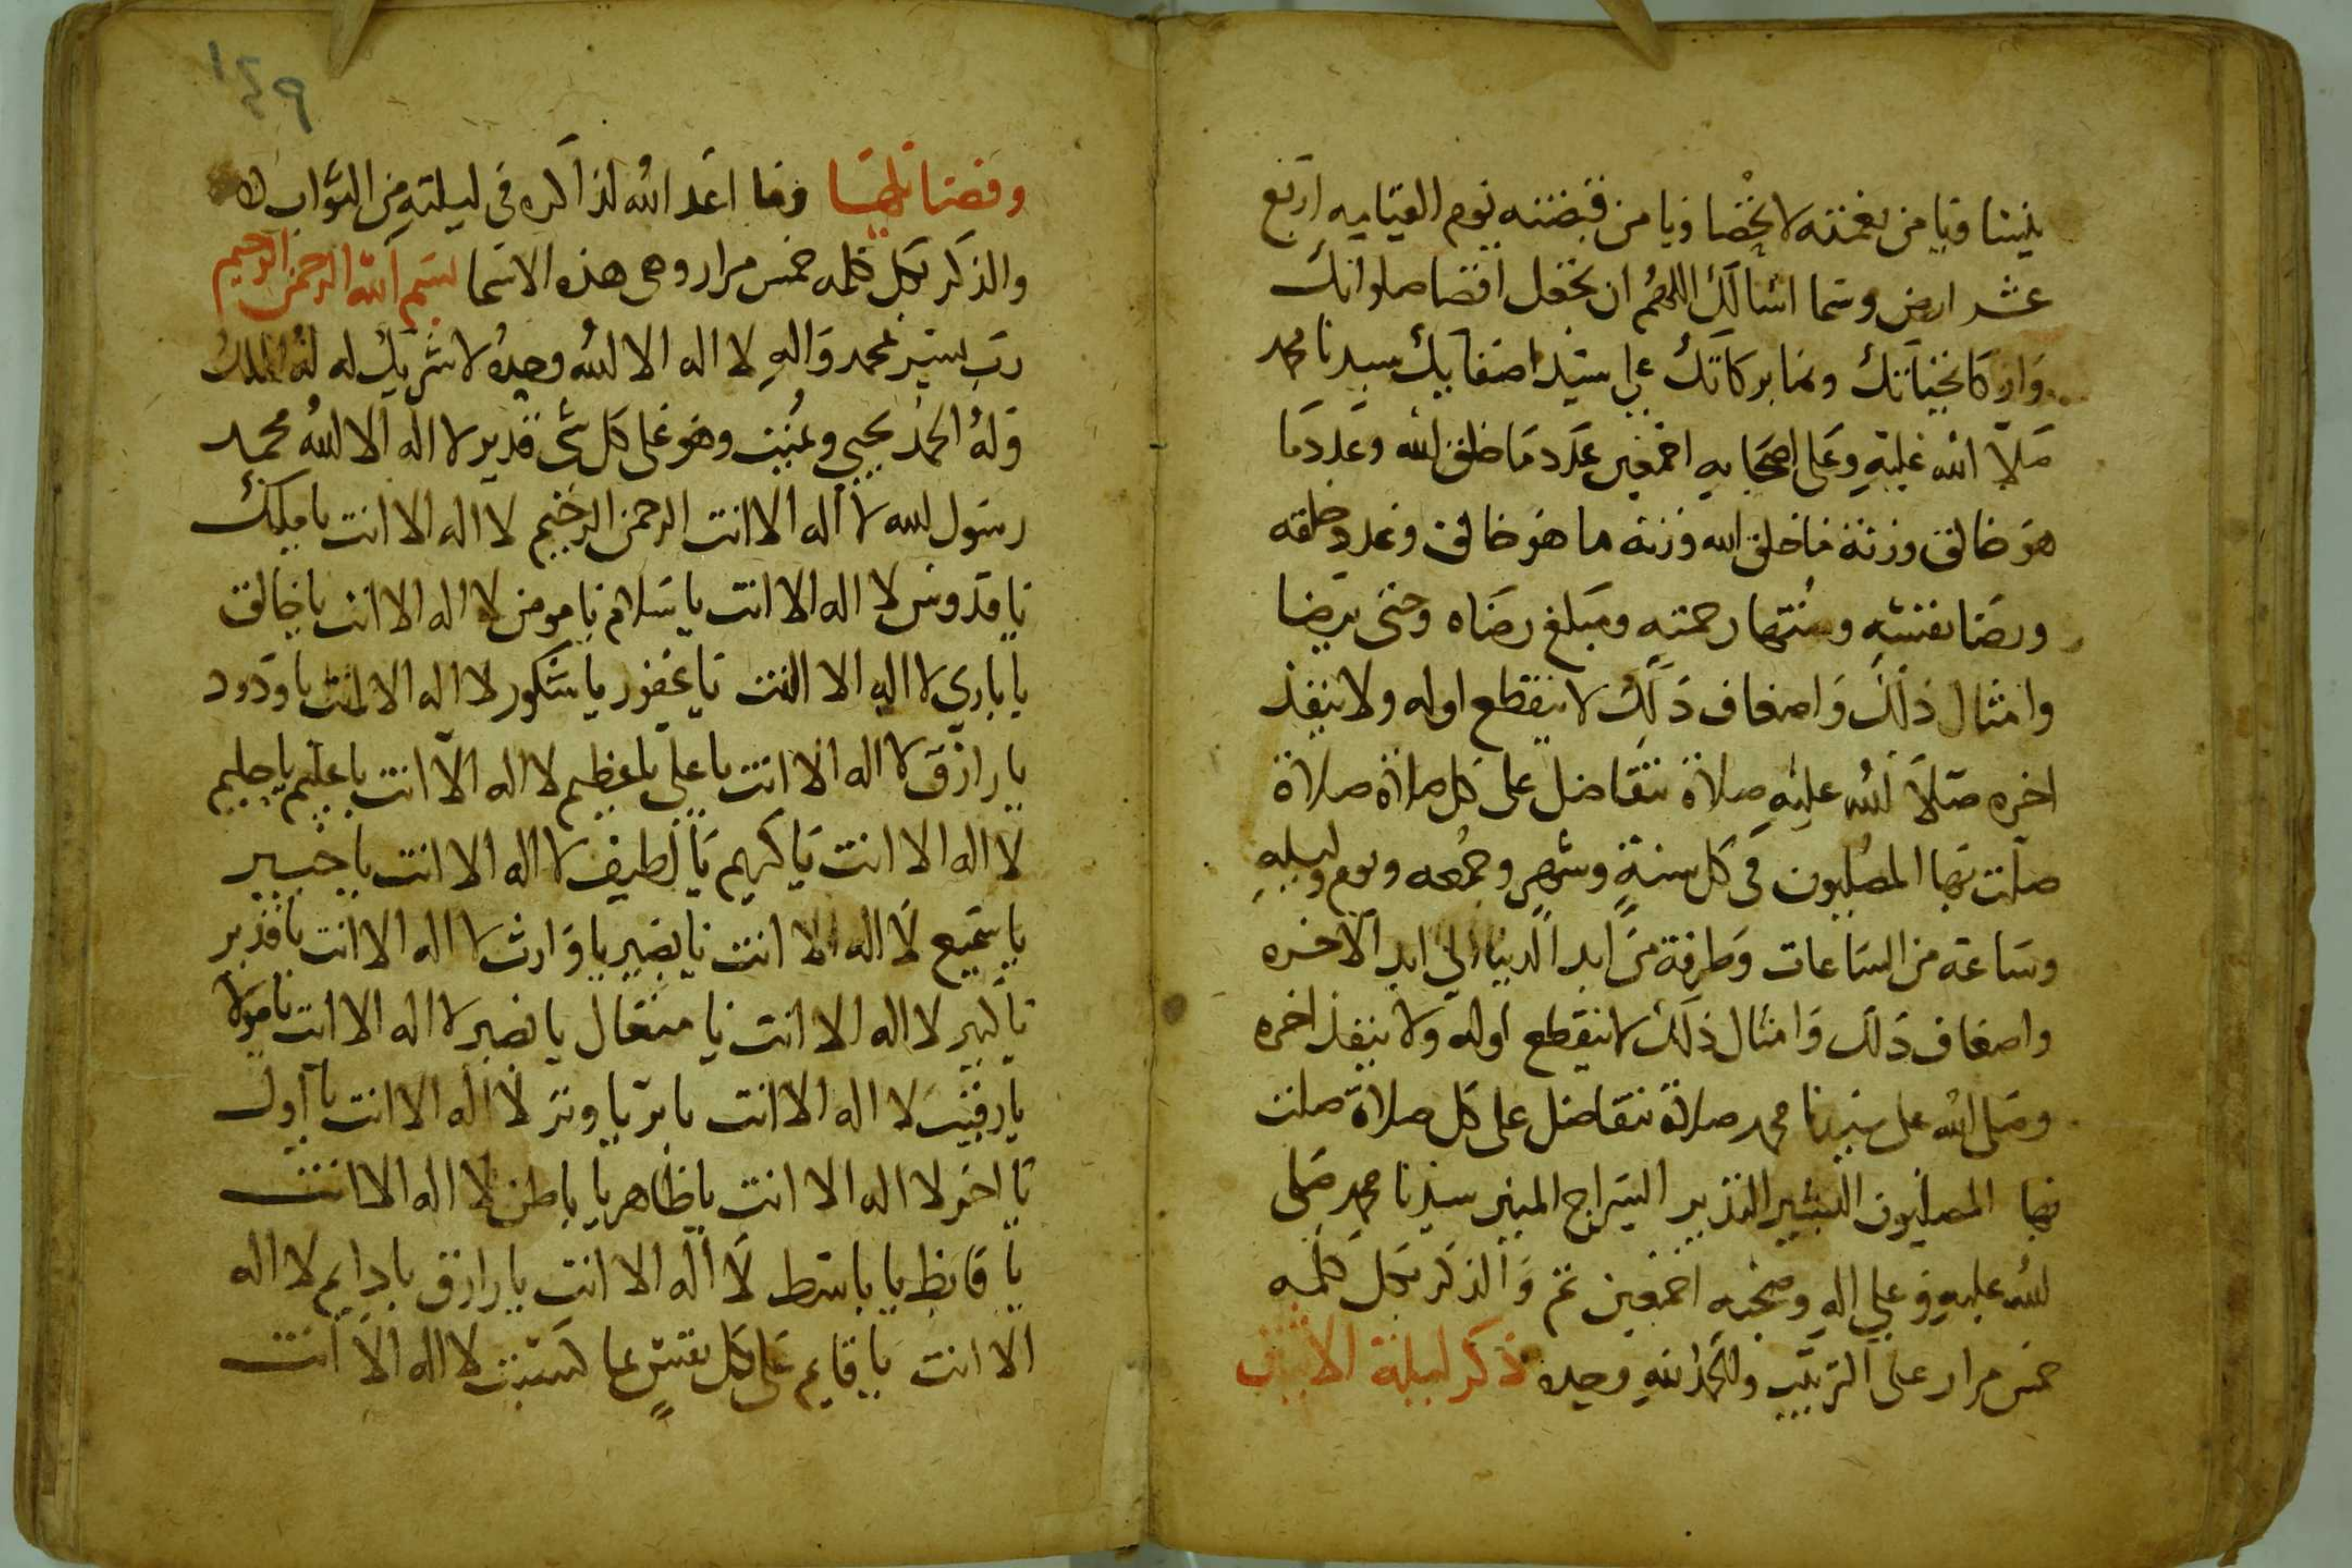 ينسا ويا من نعمته لا تحصا ويا من قبضته يوم القيامه اربع
عشر ارض وسما اسالك اللهم ان تجعل افضا صلواتك
وازكا تحياتك ونما بركاتك على سيد اصفايك سيدنا محمد
صلا الله عليه وعلى اصحابه اجمعين عدد ما خلق الله وعدد ما
هو خالق وزنة ما خلق الله وزنة ما هو خالق وعدد خلقه
ورضا نفسه ومنتها رحمته ومبلغ رضاه وحتى يرضا
وامثال ذلك واضعاف ذلك لا ينقطع اوله ولا ينفذ
اخره صلا الله عليه صلاة تتفاضل على كل صلاة صلاة
صلت بها المصليون في كل سنة وشهر وجمعه ويوم وليله
وساعة من الساعات وطرفة من ابد الدنيا الى ابد الاخره
واضعاف ذلك وامثال ذلك لا ينقطع اوله ولا ينفذ اخره
وصلى الله على سيدنا محمد صلاة تتفاضل على كل صلاة صلت
بها المصليون البشير النذير السراج المنير سيدنا محمد صلى
الله عليه وعلى اله وصحبه اجمعين تم والذكر بكل كلمه
خمس مرار على الترتيب والحمد لله وحده ذكر ليلة الاثنين
١٤٩
وفضايلها وما اعد الله لذاكره في ليلته من الثواب
والذكر بكل كلمه خمس مرار وهى هذه الاسما بسم الله الرحمن الرحيم
رب يسر بمحمد واله لا اله الا الله وحده لا شريك له له الملك
وله الحمد يحيي ويميت وهو على كل شى قدير لا اله الا الله محمد
رسول الله لا اله الا انت الرحمن الرحيم لا اله الا انت يا مليك
يا قدوس لا اله الا انت يا سلام يا مومن لا اله الا انت يا خالق
يا باري لا اله الا انت يا غفور يا شكور لا اله الا انت يا ودود
يا رازق لا اله الا انت يا علي يا عظيم لا اله الا انت يا عليم يا حليم
لا اله الا انت يا كريم يا لطيف لا اله الا انت يا خبير
يا سميع لا اله الا انت يا بصير يا وارث لا اله الا انت يا قدير
يا كبير لا اله الا انت يا متعال يا نصير لا اله الا انت يا مولا
يا رقيب لا اله الا انت يا بر يا وتر لا اله الا انت يا اول
يا اخر لا اله الا انت يا ظاهر يا باطن لا اله الا انت
يا قابظ يا باسط لا اله الا انت يا رازق يا دايم لا اله
الا انت يا قايم على كل نفس بما كسبت لا اله الا انت